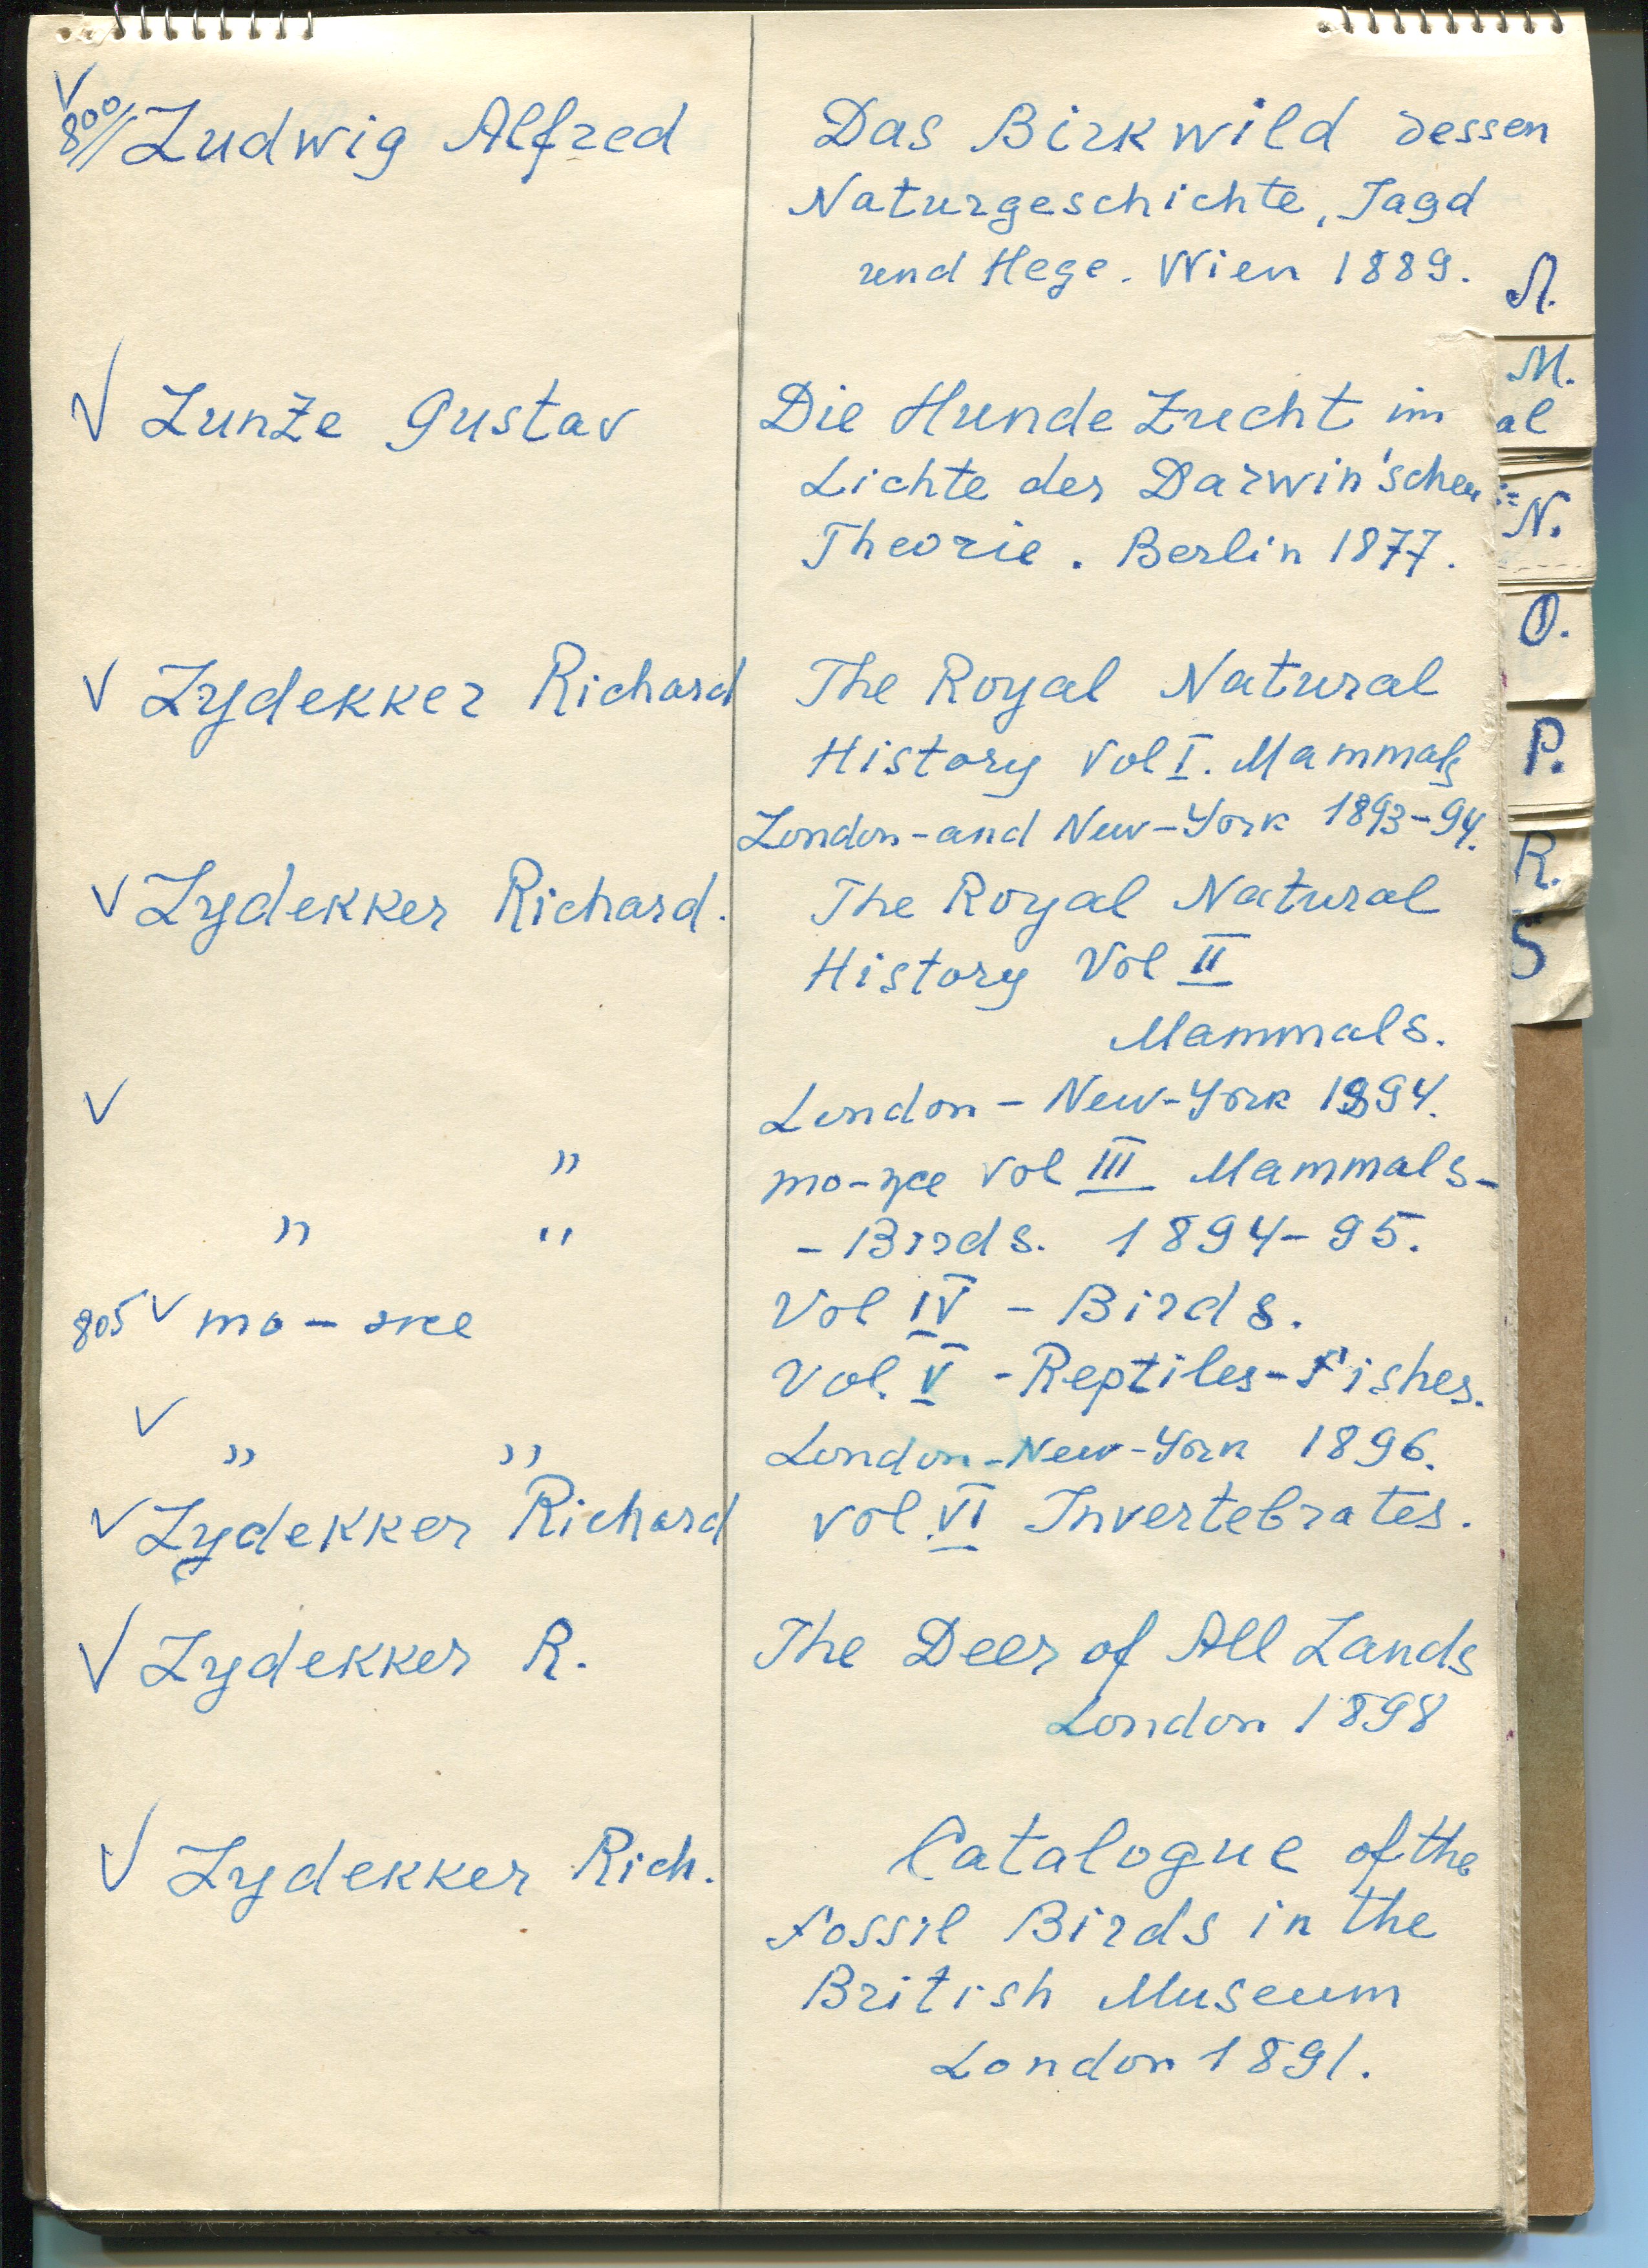 V
800// Ludwig Alfred
Das Birkwild dessen
Naturgeschichte, Jagd
und Hege. Wien 1889.
V Lunze Gustav
Die Hunde Zucht im
Lichte der Darwin'schen
Theorie. Berlin 1877.
V Lydekker Richard
The Royal Natural
History Vol I. Mammals
London-and New-York 1893-94.
V Lydekker Richard.
The Royal Natural
History Vol II
Mammals.
V
London - New-York 1894.
" то-же Vol III Mammals-
" " - Birds. 1894-95.
805 V то-же
Vol IV - Birds.
Vol. V - Reptiles-Fishes.
V
" " London-New-York 1896.
V Lydekker Richard
Vol. VI Invertebrates.
V Lydekker R.
The Deer of All Lands
London 1898
V Lydekker Rich.
Catalogue of the
Fossil Birds in the
British Museum
London 1891.
Л.
М.
al
N.
O.
P.
R.
S